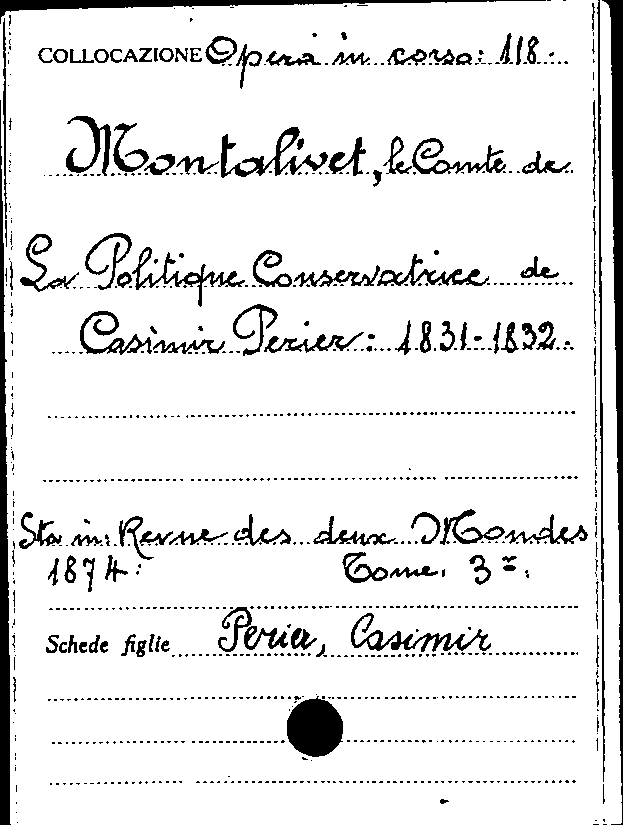 COLLOCAZIONE Opera in corso: 118.
Montalivet, le Comte de
La Politique Conservatrice de
Casimir Perier: 1831-1832.
Sta in: Revue des deux Mondes
1874: Tome. 3º.
Schede figlie Perier, Casimir